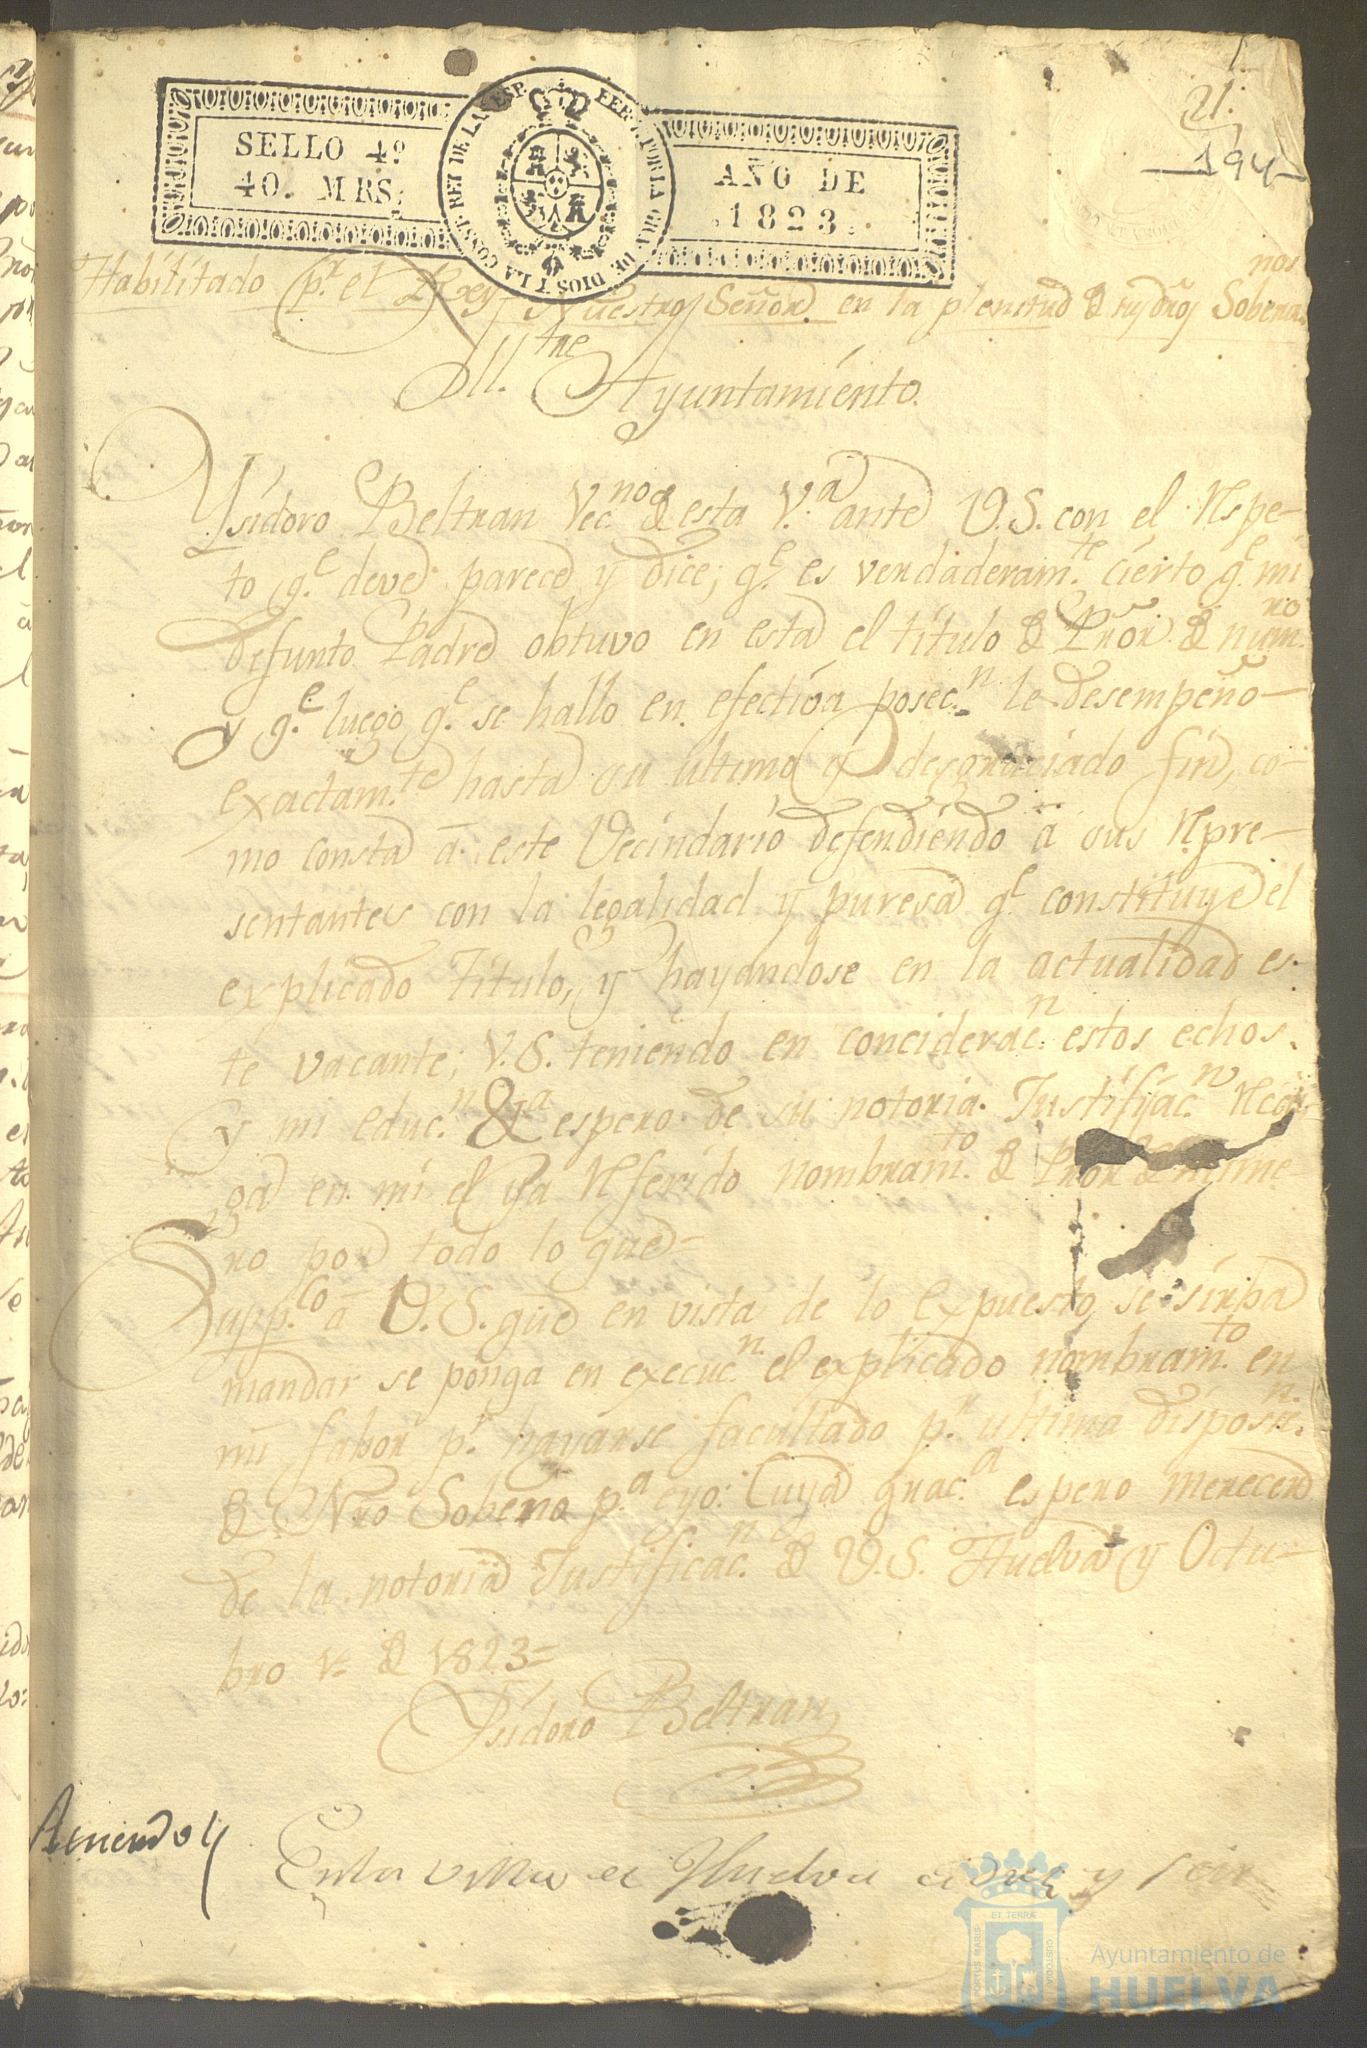 21.
194
SELLO 4º
40. MRS.
FER. 7. POR LA GRA. DE DIOS Y LA CONST. REY DE LAS ESP.
AÑO DE
1823.
Habilitado p.r el Rey Nuestro Señor en la plenitud & sus dros Soberanos
Ill.tre Ayuntamiento.
Ysidoro Beltran Vec.no & esta V.a ante V.S. con el Respe-
to q.e deve parece y dice; q.e es verdaderam.te cierto q.e mi
difunto Padre obtuvo en esta el titulo & Pror. & num.ro
y q.e luego q.e se hallo en efectiva posec.n le desempeño
exactam.te hasta su ultimo y desgraciado fin, co-
mo consta á este Vecindario defendiendo á sus Repre-
sentantes con la legalidad y puresa q.e constituye el
explicado Titulo, y hayandose en la actualidad es-
te vacante; V.S. teniendo en conciderac.n estos echos.
y mi educ.n &a espero de su notoria Justificac.n Recai-
ga en mi el ya Referido nombram.to & Pror & nume-
ro por todo lo que=
Supp.co á V.S. que en vista de lo expuesto se sirba
mandar se ponga en execuc.n el explicado nombram.to en
mi fabor p.r hayarse facultado p.r ultima disposic.n
& Nro Sobeno p.a eyo: Cuya grac.a espero merecer
de la notoria Justificac.n & V.S. Huelva y Octu-
bre 1.º & 1823=
Ysidoro Beltran
Acuerdo
En la villa de Huelva a diez y seis
PORTUS MARIS ET TERRÆ CUSTODIA
Ayuntamiento de
HUELVA